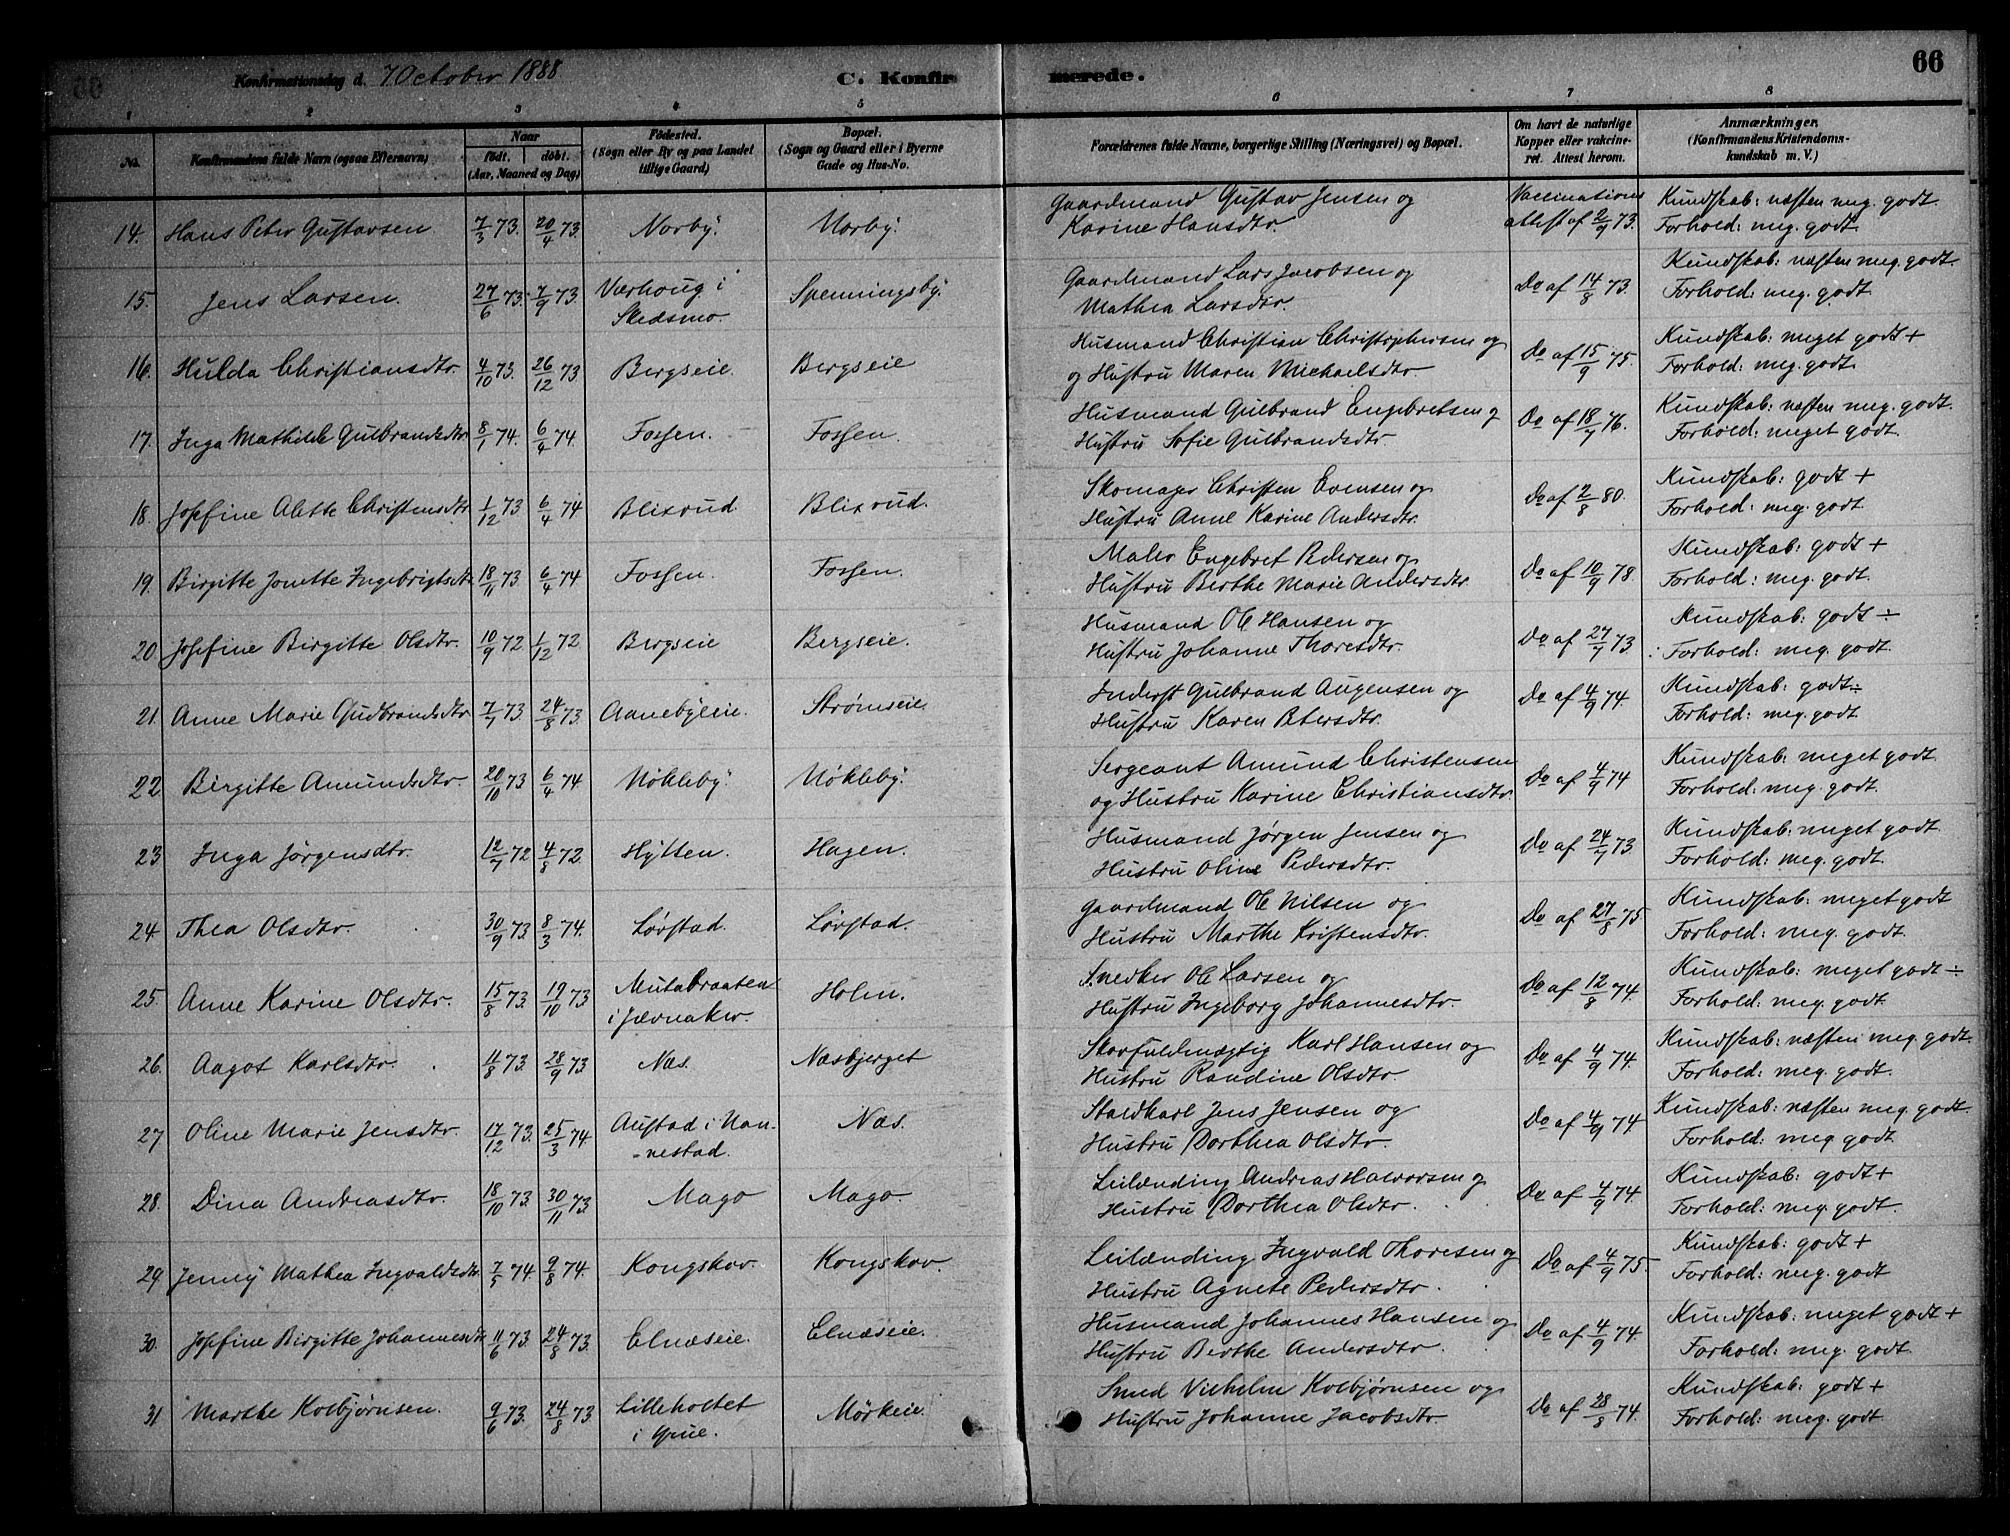 66
Konfirmationsdag d. 7 October 1888 C. Konfirmerede.
1 2 3 4 5 6 7 8
No. Konfirmandens fulde Navn (ogsaa Efternavn) Naar født. døbt. (Aar, Maaned og Dag) Fødested. (Sogn eller By og paa Landet tillige Gaard) Bopæl. (Sogn og Gaard eller i Byerne Gade og Hus-No. Forældrenes fulde Navne, borgerlige Stilling (Næringsvei) og Bopæl. Om havt de naturlige Kopper eller vakcineret. Attest herom. Anmærkninger. (Konfirmandens Kristendomskundskab m. V.)
14. Hans Peter Gustavsen 7/3 73. 20/4 73. Norby. Norby. Gaardmand Gustav Jensen og Vaccinations Kundskab: næsten meg. godt.
Karine Hansdtr. attest af 2/9 73. Forhold: meg. godt.
15. Jens Larsen. 27/6 73. 7/9 73 Værhoug i Spenningsby. Gaardmand Lars Jacobsen og Do af 14/8 73. Kundskab: næsten meg. godt.
Skedsmo. Mathea Larsdtr. Forhold: meg. godt.
16. Hulda Christiansdtr. 4/10 73. 26/12 73 Bergseie. Bergseie Husmand Christian Christophersen og Do af 15/9 75. Kundskab: meget godt +
og Hustru Maren Michaelsdtr. Forhold: meg. godt.
17. Inga Mathilde Gulbrandsdtr. 8/1 74. 6/4 74 Fossen. Fossen. Husmand Gulbrand Engebretsen og Do af 18/7 76. Kundskab: næsten meg. godt.
Hustru Sofie Gulbrandsdtr. Forhold: meget godt.
18. Josefine Alette Christensdtr. 1/12 73 6/4 74 Blixrud. Blixrud. Skomager Christen Evensen og Do af 2/8 80. Kundskab: godt +
Hustru Anne Karine Andersdtr. Forhold: meg. godt
19. Birgitte Jonette Ingebrigtsdtr. 18/11 73 6/4 74 Fossen. Fossen. Maler Engebret Pedersen og Do af 10/9 78. Kundskab: godt +
Hustru Berthe Marie Andersdtr. Forhold: meg. godt.
20 Josefine Birgitte Olsdtr. 10/9 72 1/12 72 Bergseie Bergseie. Husmand Ole Hansen og Do af 27/7 73 Kundskab: godt ÷
Hustru Johanne Thoresdtr. Forhold: meg. godt.
21. Anne Marie Gudbrandsdtr. 7/7 73. 24/8 73. Aanebyeie. Strømseie. Inderst Gulbrand Augensen og Do af 4/9 74. Kundskab: godt ÷
Hustru Karen Petersdtr. Forhold: meg. godt.
22 Birgitte Amundsdtr. 20/10 73 6/4 74. Nökleby. Nökleby. Sergeant Amund Christensen Do af 4/9 74 Kundskab: meget godt.
og Hustru Karine Christiansdtr. Forhold: meg. godt.
23 Inga Jørgensdtr. 12/7 72 4/8 72. Hytten. Hagen. Husmand Jørgen Jensen og Do af 24/7 73. Kundskab: meget godt
Hustru Oline Pedersdtr. Forhold: meg. godt.
24 Thea Olsdtr. 30/9 73. 8/3 74. Lørstad. Lørstad. Gaardmand Ole Nilsen og Do af 27/8 75 Kundskab: meget godt
Hustru Marthe Kristensdtr. Forhold: meg. godt.
25. Anne Karine Olsdtr. 15/8 73. 19/10 73 Mutabraaten Holm. Snedker Ole Larsen og Do af 12/8 74. Kundskab: meget godt ÷
i Jævnaker. Hustru Ingeborg Johannesdtr. Forhold: meg. godt
26. Aagot Karlsdtr. 11/8 73. 28/9 73 Næs. Næsbjerget Skovfuldmægtig Karl Hansen og Do af 4/9 74. Kundskab: næsten meg. godt.
Hustru Randine Olsdtr. Forhold: meg. godt.
27 Oline Marie Jensdtr. 17/12 73. 25/3 74 Austad i Nan- Næs. Staldkarl Jens Jensen og Do af 4/9 74 Kundskab: næsten meg. godt.
-nestad. Hustru Dorthea Olsdtr. Forhold: meg godt
28. Dina Andreasdtr. 18/10 73. 30/11 73. Mago Mago. Leilænding Andreas Halvorsen og Do af 4/9 74. Kundskab: godt +
Hustru Dorthea Olsdtr. Forhold: meg. godt.
29. Jenny Mathea Ingvaldsdtr. 7/5 74. 9/8 74. Kongskov. Kongskov. Leilænding Ingvald Thoresen og Do af 4/9 75. Kundskab: godt +
Hustru Agnete Pedersdtr. Forhold: meg. godt
30. Josefine Birgitte Johannesdtr. 11/6 73. 24/8 73. Elnæseie. Elnæseie. Husmand Johannes Hansen og Do af 4/9 74. Kundskab: meget godt +
Hustru Berthe Andersdtr. Forhold: meg. godt.
31 Marthe Kolbjørnsen. 9/6 73. 24/8 73 Lilleholtet Mörkeie. Smed Vilhelm Kolbjørnsen og Do af 28/8 74. Kundskab: godt +
i Grue. Hustru Johanne Jacobsdtr. Forhold: meg. godt